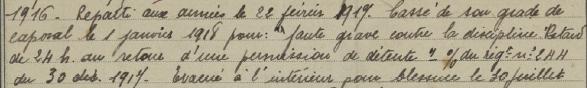 1916. Reparti aux armées le 22 février 1917. Cassé de son grade de
caporal le 1 janvier 1918 pour: "faute grave contre la discipline. Retard
de 24 h. au retour d'une permission de détente" O/ du régt n° 244
du 30 déc. 1917. Evacué à l'intérieur pour blessure le 30 juillet